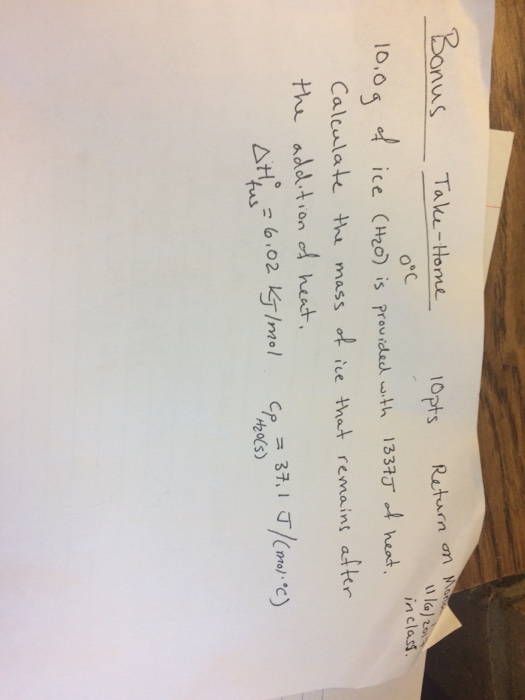 Bonus Take-Home 10pts Return on
11/6/
in class.
0°C
10.0g of ice (H2O) is provided with 1337J of heat.
Calculate the mass of ice that remains after
the addition of heat.
ΔH°fus = 6.02 KJ/mol Cp H2O(s) = 37.1 J/(mol·°C)